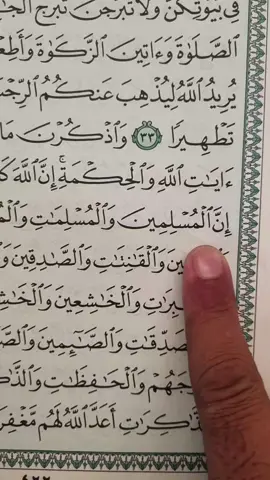 فِي بُيُوتِكُنَّ وَلَا تَبَرَّجْنَ تَبَرُّجَ
ٱلصَّلَوٰةَ وَءَاتِينَ ٱلزَّكَوٰةَ وَأَطِعْ
يُرِيدُ ٱللَّهُ لِيُذْهِبَ عَنكُمُ ٱلرِّجْ
تَطْهِيرًا ٣٣ وَٱذْكُرْنَ مَا
ءَايَٰتِ ٱللَّهِ وَٱلْحِكْمَةِ ۚ إِنَّ ٱللَّهَ كَا
إِنَّ ٱلْمُسْلِمِينَ وَٱلْمُسْلِمَٰتِ وَٱلْمُ
وَٱلْقَٰنِتَٰتِ وَٱلصَّٰدِقِينَ وَٱل
بِرَٰتِ وَٱلْخَٰشِعِينَ وَٱلْخَٰشِ
صَدِّقَٰتِ وَٱلصَّٰٓئِمِينَ وَٱلصَّ
وجَهُمْ وَٱلْحَٰفِظَٰتِ وَٱلذَّٰكِ
ذَّٰكِرَٰتِ أَعَدَّ ٱللَّهُ لَهُم مَّغْفِرَ
٤٢٢